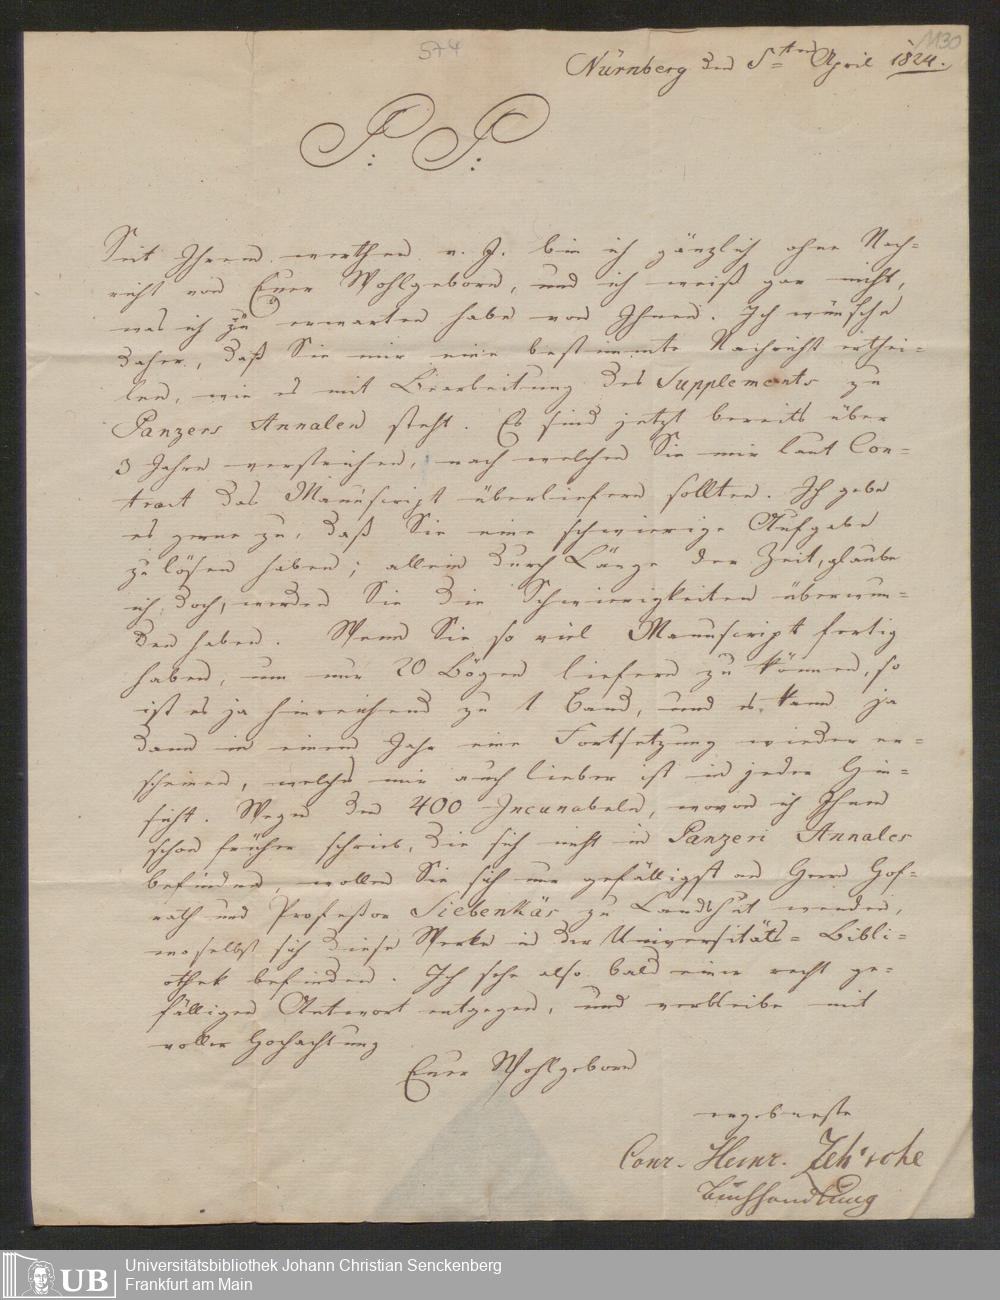 574
1130
Nürnberg den 5ten April 1824.
P: P:
Seit Ihrem werthen v. J. bin ich gänzlich ohne Nach-
richt von Euer Wohlgeborn, und ich weiß gar nicht,
was ich zu erwarten habe von Ihnen. Ich wünsche
daher, daß Sie mir eine bestimmte Nachricht erthei-
len, wie es mit Bearbeitung des Supplements zu
Panzers Annalen steht. Es sind jetzt bereits über
3 Jahre verstrichen, nach welchen Sie mir laut Con-
tract das Manuscript überliefern sollten. Ich gebe
es gerne zu, daß Sie eine schwierige Aufgabe
zu lösen haben; allein durch Länge der Zeit, glaube
ich doch, werden Sie die Schwierigkeiten überwun-
den haben. Wenn Sie so viel Manuscript fertig
haben, um nur 20 Bögen liefern zu können, so
ist es ja hinreichend zu 1 Band, und es kann ja
dann in einem Jahr eine Fortsetzung wieder er-
scheinen, welches mir auch lieber ist in jeder Hin-
sicht. Wegen den 400 Incunabeln, wovon ich Ihnen
schon früher schrieb, die sich nicht in Panzeri Annales
befinden, wollen Sie sich nur gefälligst an Herrn Hof-
rath und Profeßor Siebenkäs zu Landshut wenden,
woselbst sich diese Werke in der Universitäts-Bibli-
othek befinden. Ich sehe also bald einer recht ge-
fälligen Antwort entgegen, und verbleibe mit
voller Hochachtung
Euer Wohlgeborn
ergebenste
Conr. Heinr. Zeh'sche
Buchhandlung
UB
Universitätsbibliothek Johann Christian Senckenberg
Frankfurt am Main